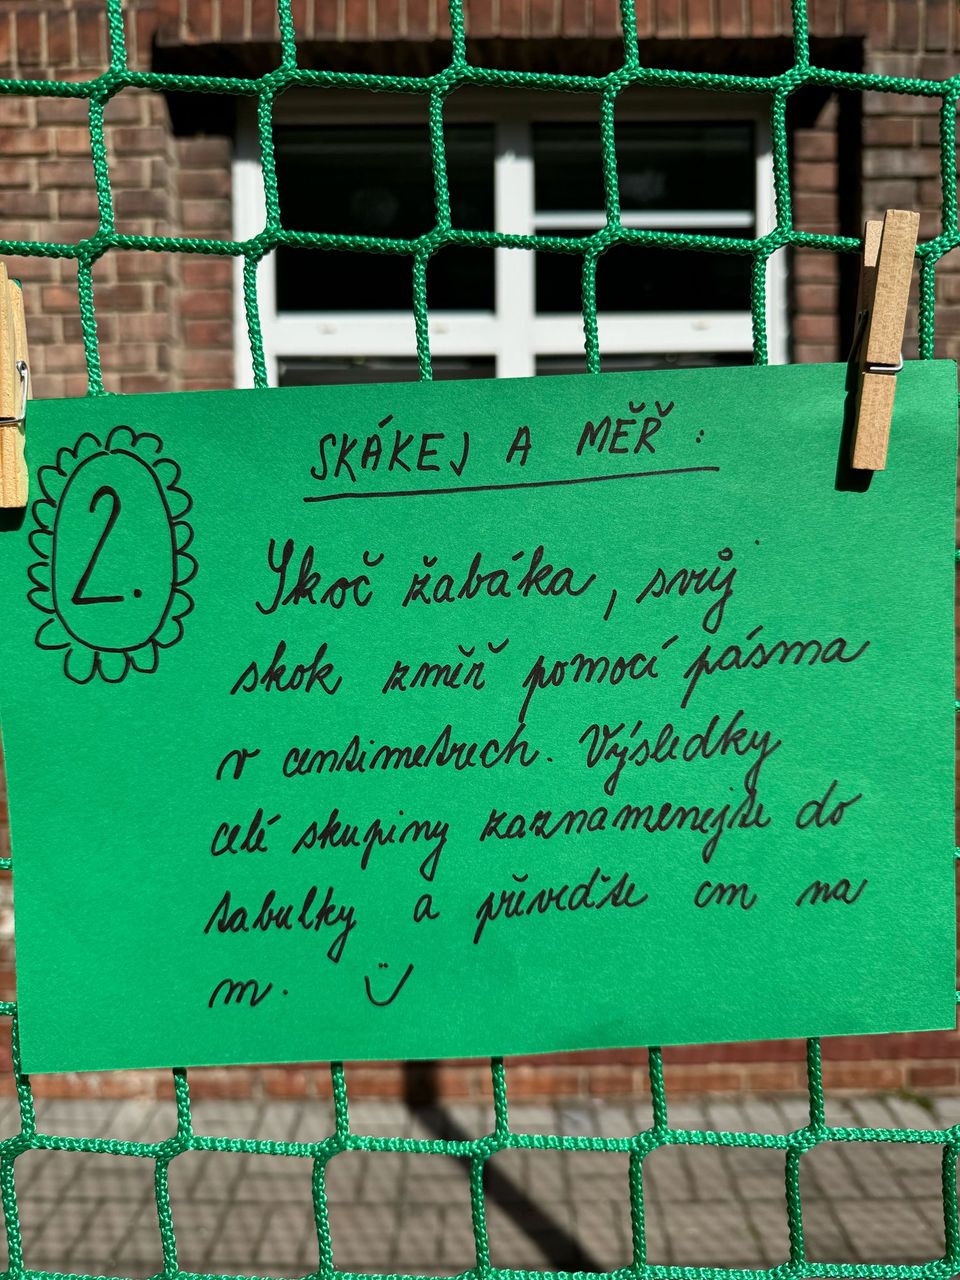 2.
SKÁKEJ A MĚŘ :
Skoč žabáka, svůj
skok změř pomocí pásma
v centimetrech. Výsledky
celé skupiny zaznamenejte do
tabulky a převeďte cm na
m. Ü